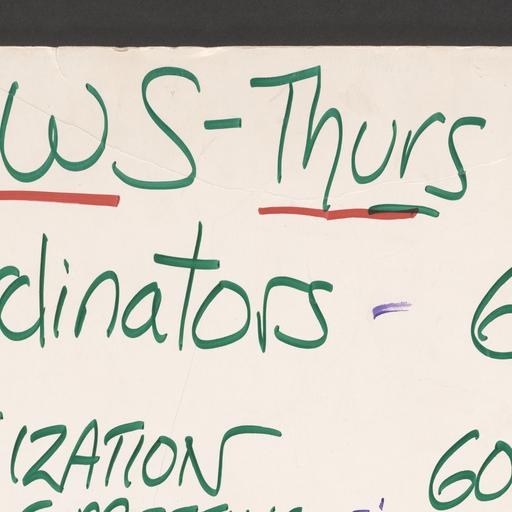 WS-Thurs
dinators - 6
IZATION 60